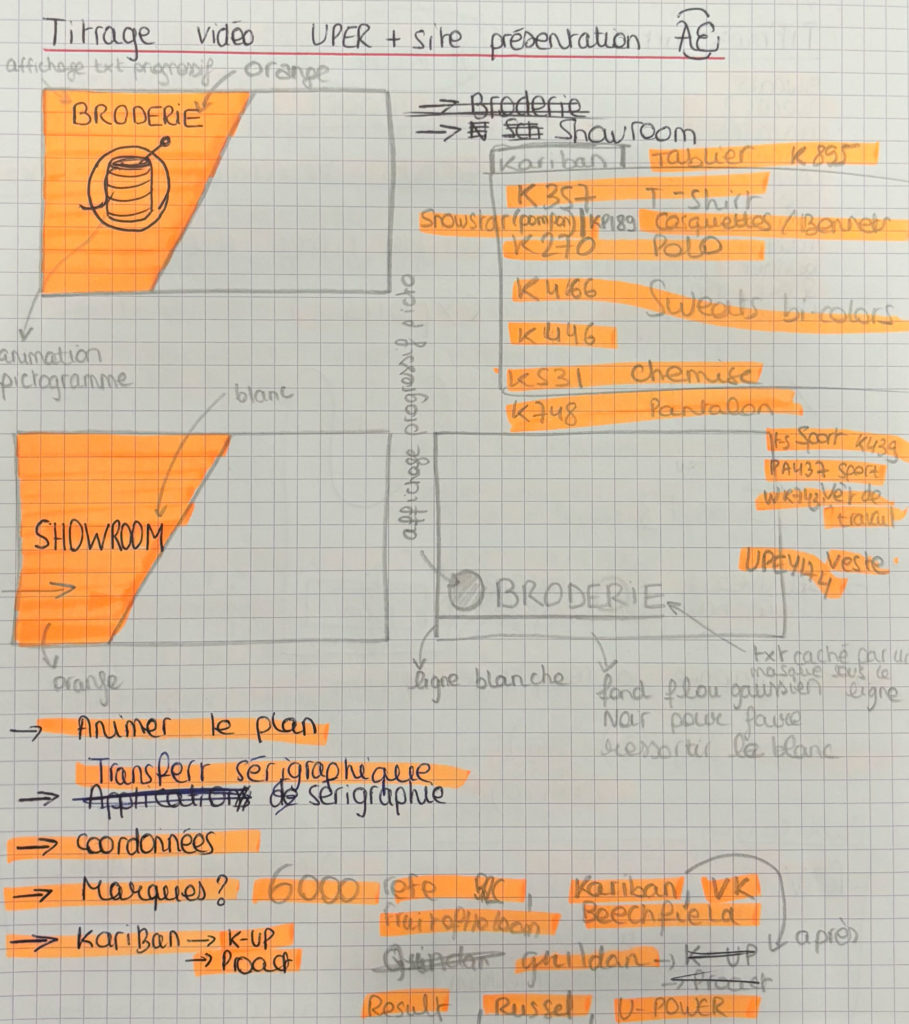 Titrage vidéo UPER + site présentation AE
affichage txt progressif
orange
BRODERIE
→ Broderie
→ Showroom
Kariban Tablier K895
K357 T-Shirt
Snowstar (pompon) | KP189 Casquettes / Bonnets
K270 POLO
K4166 Sweats bi-colors
K446
K531 chemise
K748 Pantalon
animation
pictogramme
affichage progressif picto
blanc
SHOWROOM
orange
Sport K439
PA437 sport
Vêt de
travail
Veste
BRODERIE
ligne blanche
txt caché par un
masque sous la
ligne
fond flou gaussien
Noir pour faire
ressortir le blanc
→ Animer le plan
Transfert sérigraphique
→ Applications de sérigraphie
→ coordonnées
→ Marques? 6000 refe, Kariban, VK
fruitoftheloom Beechfield
→ KariBan → K-UP
→ Proact
guildan → K-UP
→ Proact
après
Result, Russel, U-POWER